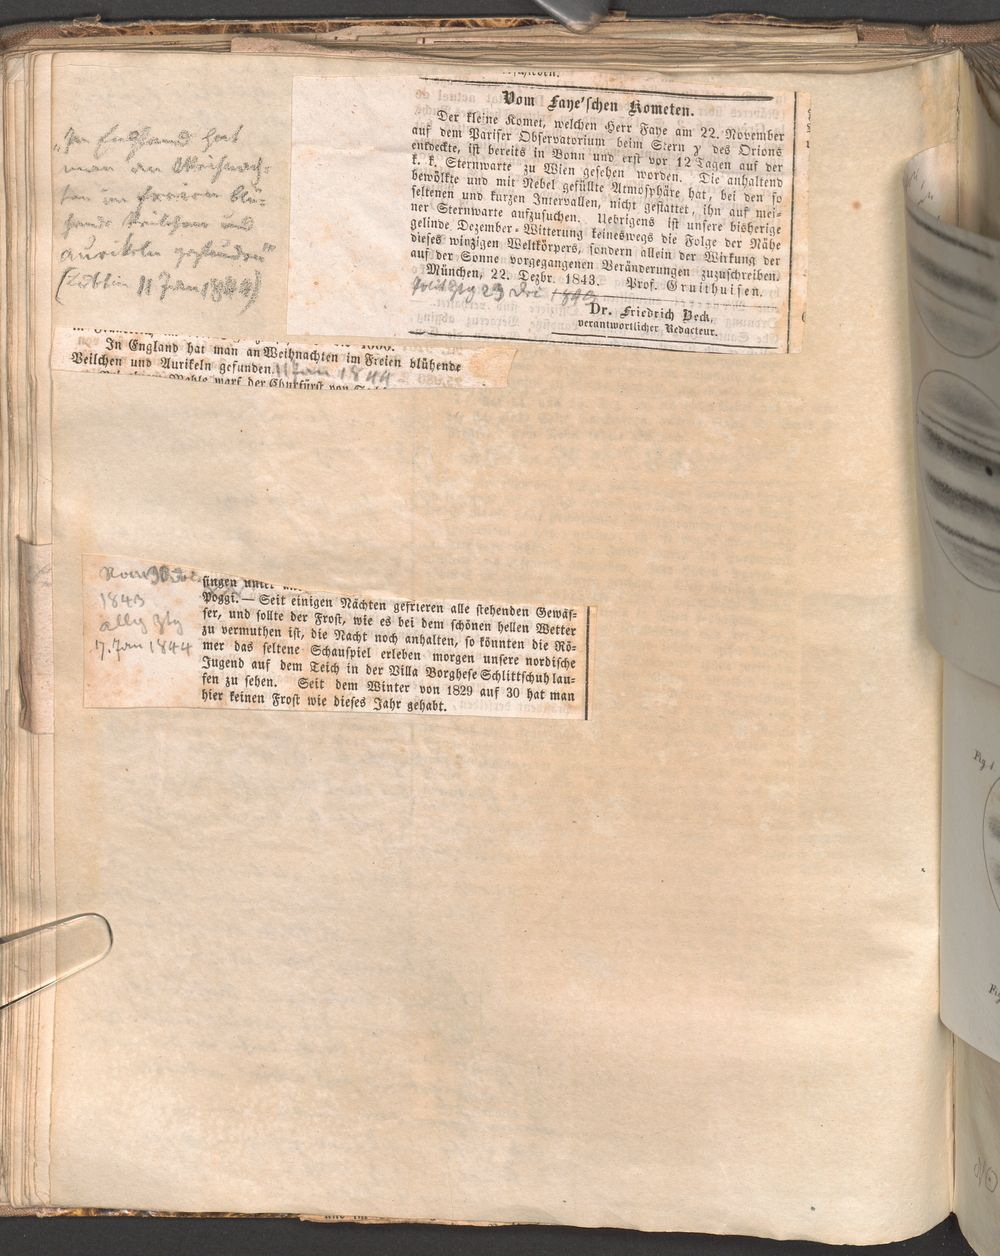 „In England hat
man an Weihnach-
ten im Freien blü-
hende Veilchen und
Aurikeln gefunden“
11 Jan 1844)
Vom Faye'schen Kometen.
Der kleine Komet, welchen Herr Faye am 22. November
auf dem Pariser Observatorium beim Stern γ des Orions
entdeckte, ist bereits in Bonn und erst vor 12 Tagen auf der
k. k. Sternwarte zu Wien gesehen worden. Die anhaltend
bewölkte und mit Nebel gefüllte Atmosphäre hat, bei den so
seltenen und kurzen Intervallen, nicht gestattet, ihn auf mei-
ner Sternwarte aufzusuchen. Uebrigens ist unsere bisherige
gelinde Dezember-Witterung keineswegs die Folge der Nähe
dieses winzigen Weltkörpers, sondern allein der Wirkung der
auf der Sonne vorgegangenen Veränderungen zuzuschreiben.
München, 22. Dezbr. 1843. Prof. Gruithuisen.
Ztg 23 Dez 1843
Dr. Friedrich Beck,
verantwortlicher Redacteur.
In England hat man an Weihnachten im Freien blühende
Veilchen und Aurikeln gefunden. 11 Jan 1844
warf der Churfürst von
Rom 30 Dez
1843
Allg Ztg
singen unter
Poggi. — Seit einigen Nächten gefrieren alle stehenden Gewäs-
ser, und sollte der Frost, wie es bei dem schönen hellen Wetter
zu vermuthen ist, die Nacht noch anhalten, so könnten die Rö-
mer das seltene Schauspiel erleben morgen unsere nordische
Jugend auf dem Teich in der Villa Borghese Schlittschuh lau-
fen zu sehen. Seit dem Winter von 1829 auf 30 hat man
hier keinen Frost wie dieses Jahr gehabt.
7. Jan 1844
Fig. 1.